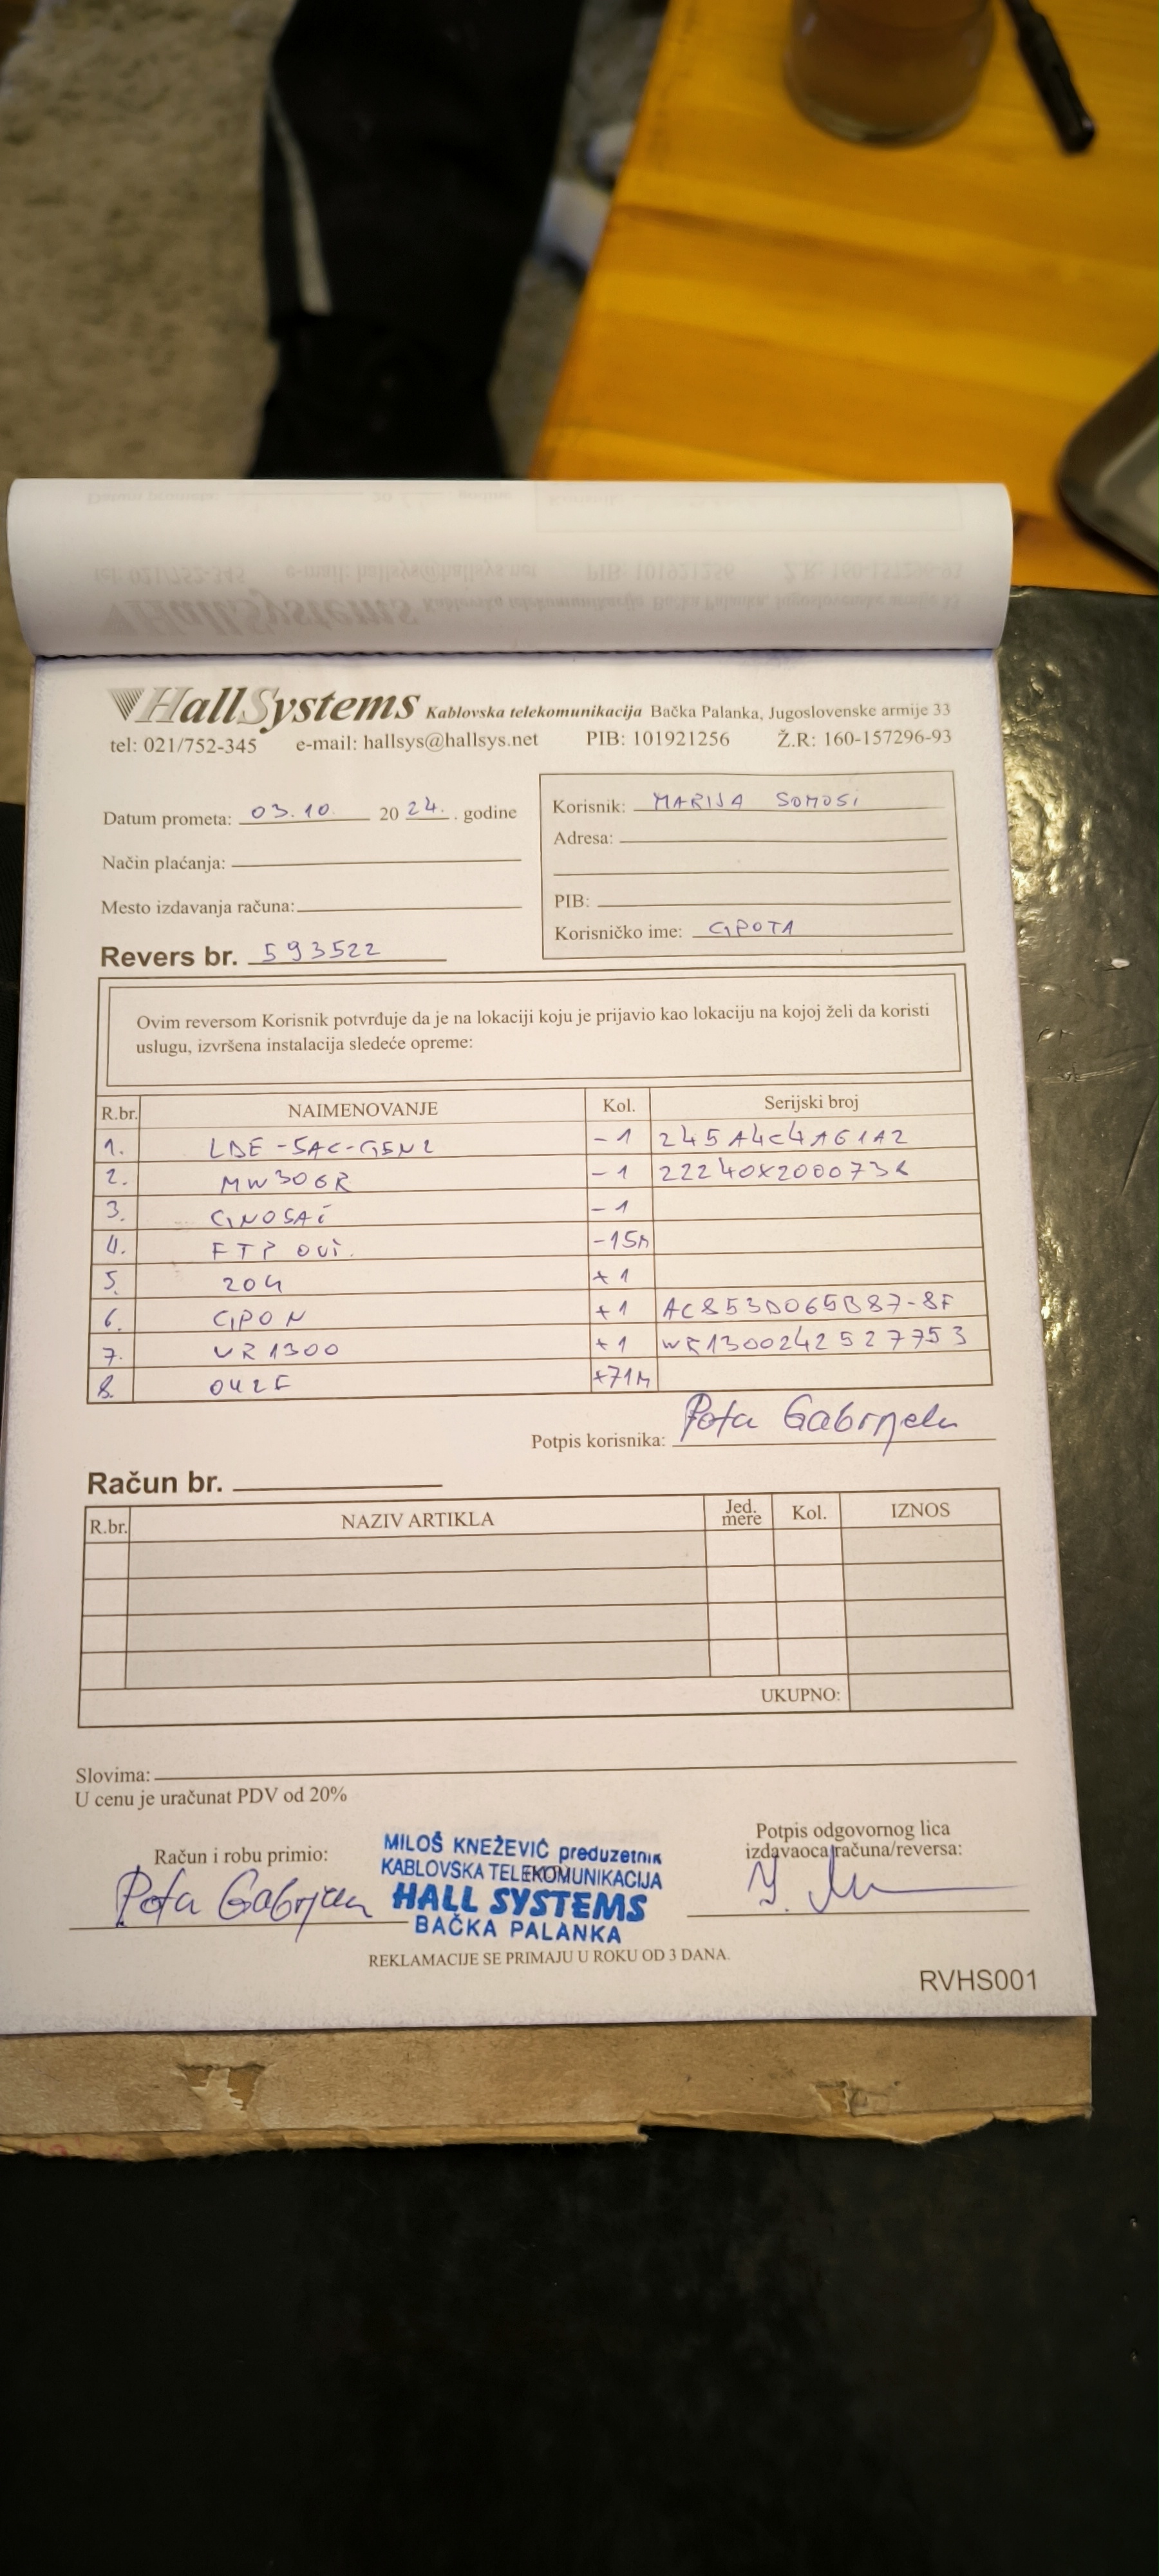 HallSystems Kablovska telekomunikacija Bačka Palanka, Jugoslovenske armije 33
tel: 021/752-345 e-mail: hallsys@hallsys.net PIB: 101921256 Ž.R: 160-157296-93
Datum prometa: 03.10. 20 24. . godine
Način plaćanja:
Mesto izdavanja računa:
Revers br. 593522
Korisnik: MARIJA SOMOSI
Adresa:
PIB:
Korisničko ime: GPOTA
Ovim reversom Korisnik potvrđuje da je na lokaciji koju je prijavio kao lokaciju na kojoj želi da koristi
uslugu, izvršena instalacija sledeće opreme:
R.br. NAIMENOVANJE Kol. Serijski broj
1. LDE-5AC-GEN2 -1 245A4C4A61A2
2. MW306R -1 22240X2000738
3. GNOSAČ -1
4. FTP OUT. -15m
5. 204 +1
6. GPON +1 AC853D065B87-8F
7. WR1300 +1 WR1300242527753
8. 042F +71m
Potpis korisnika: Pota Gabrijela
Račun br.
R.br. NAZIV ARTIKLA Jed. mere Kol. IZNOS
UKUPNO:
Slovima:
U cenu je uračunat PDV od 20%
Račun i robu primio:
Pota Gabrijela
MILOŠ KNEŽEVIĆ preduzetnik
KABLOVSKA TELEKOMUNIKACIJA
HALL SYSTEMS
BAČKA PALANKA
Potpis odgovornog lica
izdavaoca računa/reversa:
REKLAMACIJE SE PRIMAJU U ROKU OD 3 DANA.
RVHS001